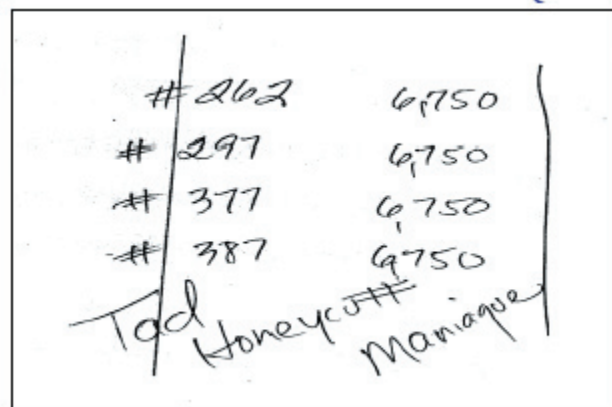 # 262 6,750
# 297 6,750
# 377 6,750
# 387 6,750
Tad Honeycutt Maniaque